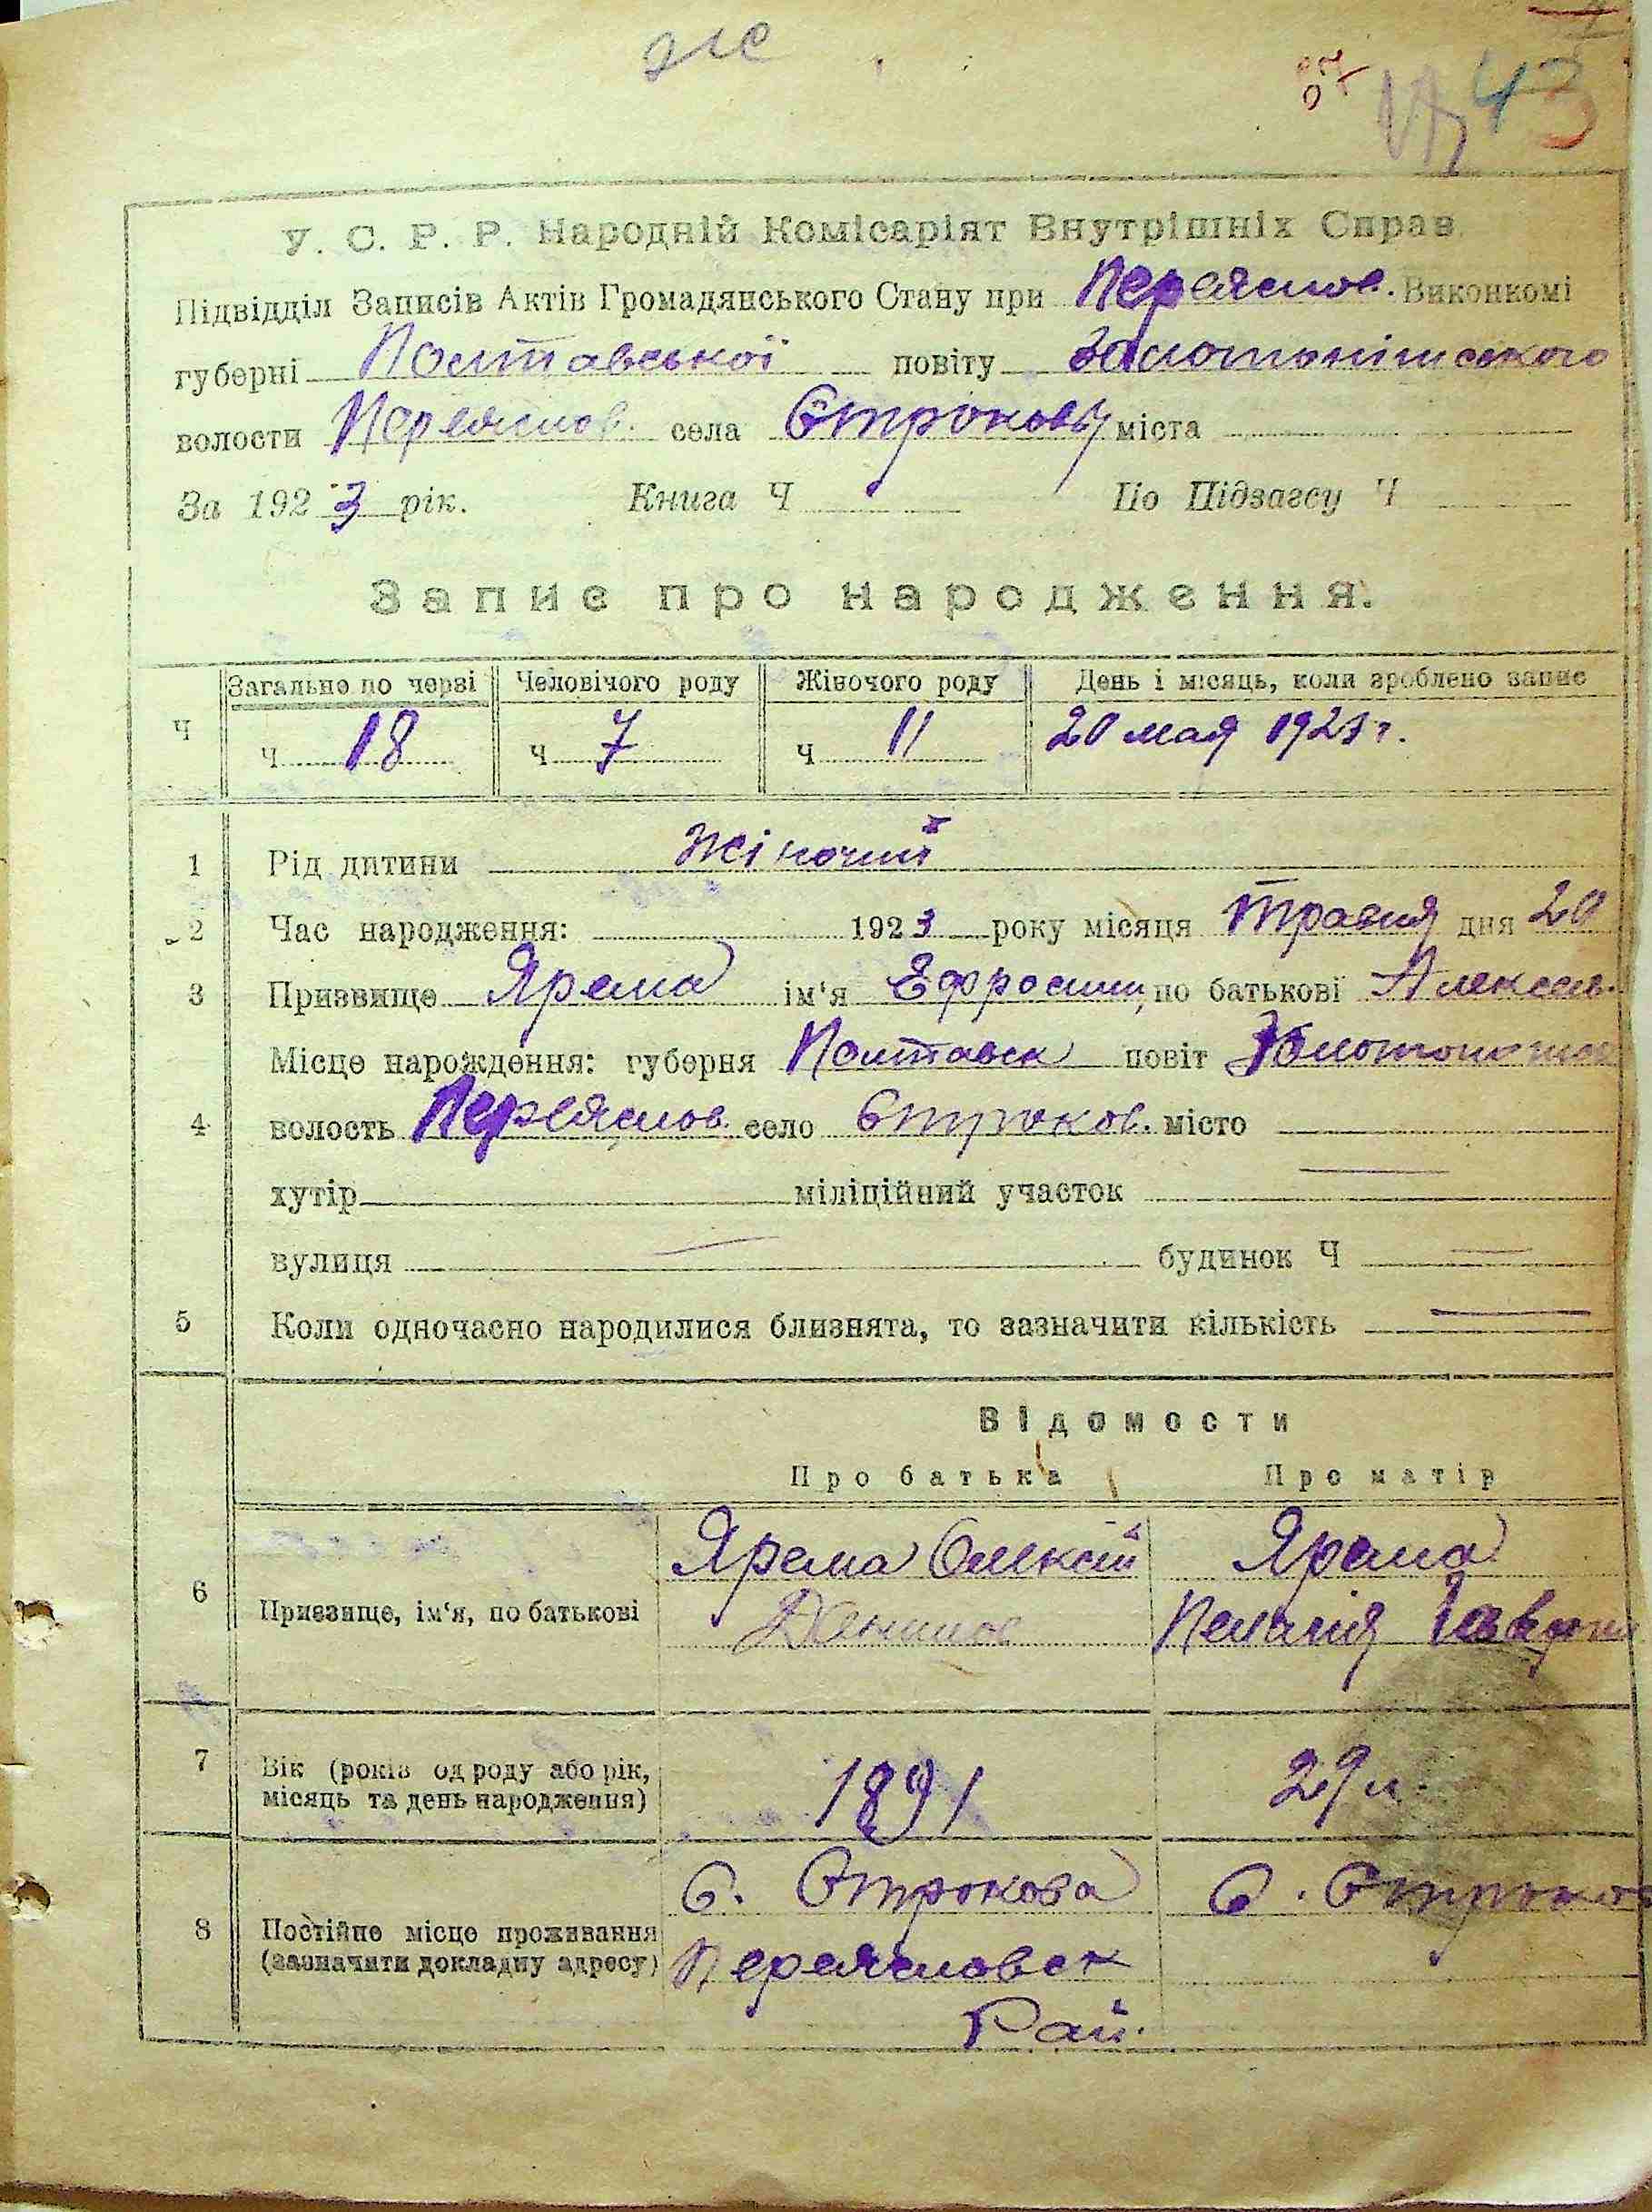 же
43
У. С. Р. Р. Народній Комісаріят Внутрішніх Справ
Підвідділ Записів Актів Громадянського Стану при Переяслов. Виконкомі
губерні Полтавської повіту Золотонішського
волости Переяслов. села Строкови міста
За 1923 рік. Книга Ч По Підзагсу Ч
Запис про народження.
Загально по черзі Человічого роду Жіночого роду День і місяць, коли зроблено запис
Ч Ч 18 Ч 7 Ч 11 20 мая 1923 г.
1 Рід дитини Жіночий
2 Час народження: 1923 року місяця Травня дня 20
3 Призвище Ярема ім'я Ефросини, по батькові Алексеев.
Місце народження: губерня Полтавск повіт
4 волость Переяслов. село Строков. місто
хутір міліційний участок
вулиця будинок Ч
5 Коли одночасно народилися близнята, то зазначити кількість
Відомости
Про батька Про матір
Ярема Олексій Ярема
6 Призвище, ім'я, по батькові Данилов Пелагія
7 Вік (років од роду або рік, місяць та день народження) 1891 29 л.
С. Строкова С. Строков
8 Постійне місце проживання Переясловск
(зазначити докладну адресу)
Рай.